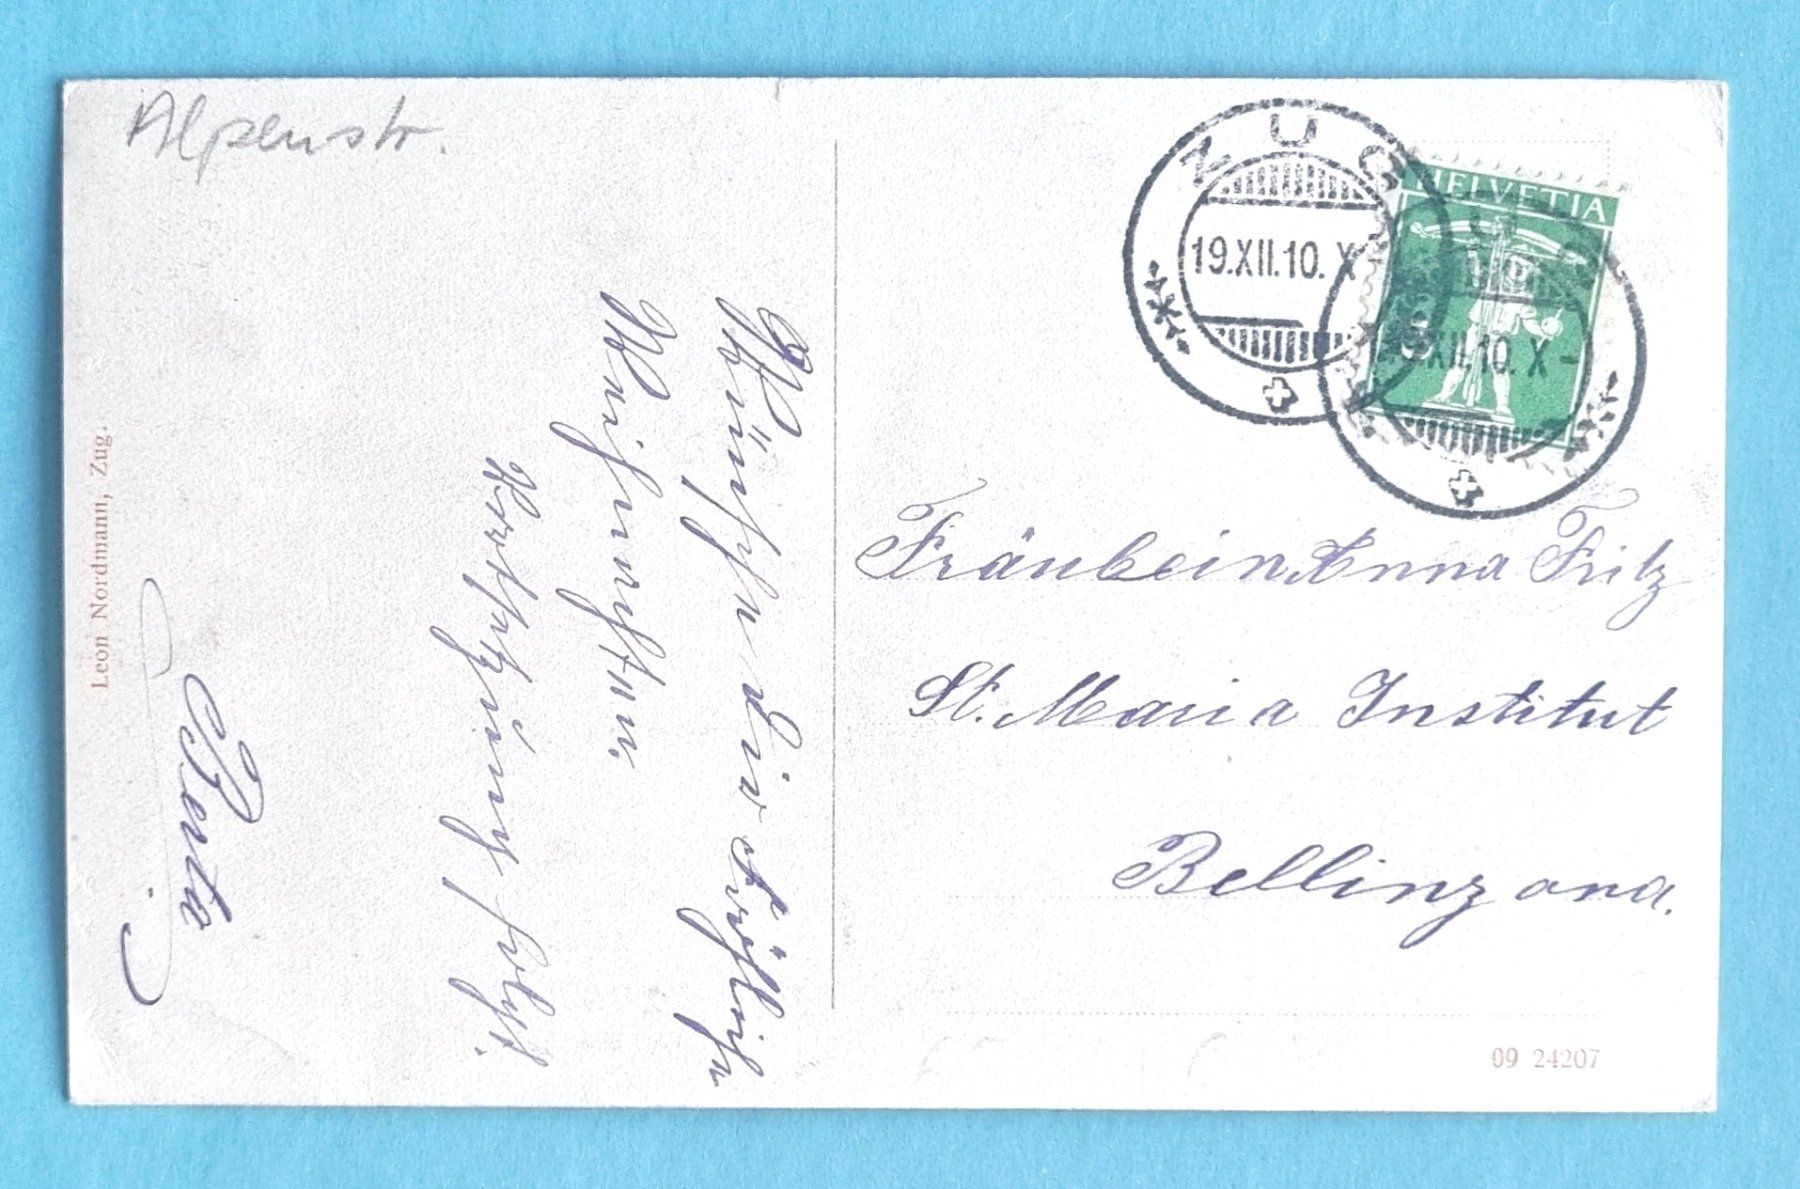 Alpenstr.
Wünsche dir fröhliche
Weihnachten.
Fortsetzung folgt.
Berta
Leon Nordmann, Zug.
ZUG
19.XII.10. X
HELVETIA
ZUG
XII.10. X-
Fräulein Anna Fritz
St. Maria Institut
Bellinzona.
09 24207